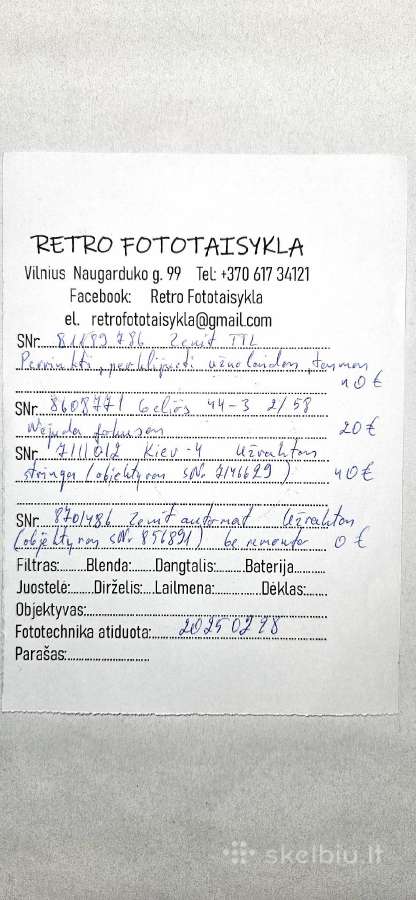 RETRO FOTOTAISYKLA
Vilnius Naugarduko g. 99 Tel: +370 617 34121
Facebook: Retro Fototaisykla
el. retrofototaisykla@gmail.com
SNr. 81189786 Zenit TTL
10 €
SNr. 8608771 Gelios 44-3 2/58
20 €
SNr. 7111012 Kiev-4 Užraktas
stringa (objektyvas sNr 7146629) 40 €
SNr. 8701486 Zenit automat Užraktas
(objektyvas sNr 856891) be remonto 0 €
Filtras:........Blenda:........Dangtalis:........Baterija........
Juostelė:......Dirželis:...Lailmena:............Dėklas:........
Objektyvas:
Fototechnika atiduota: 20250218
Parašas:
skelbiu.lt